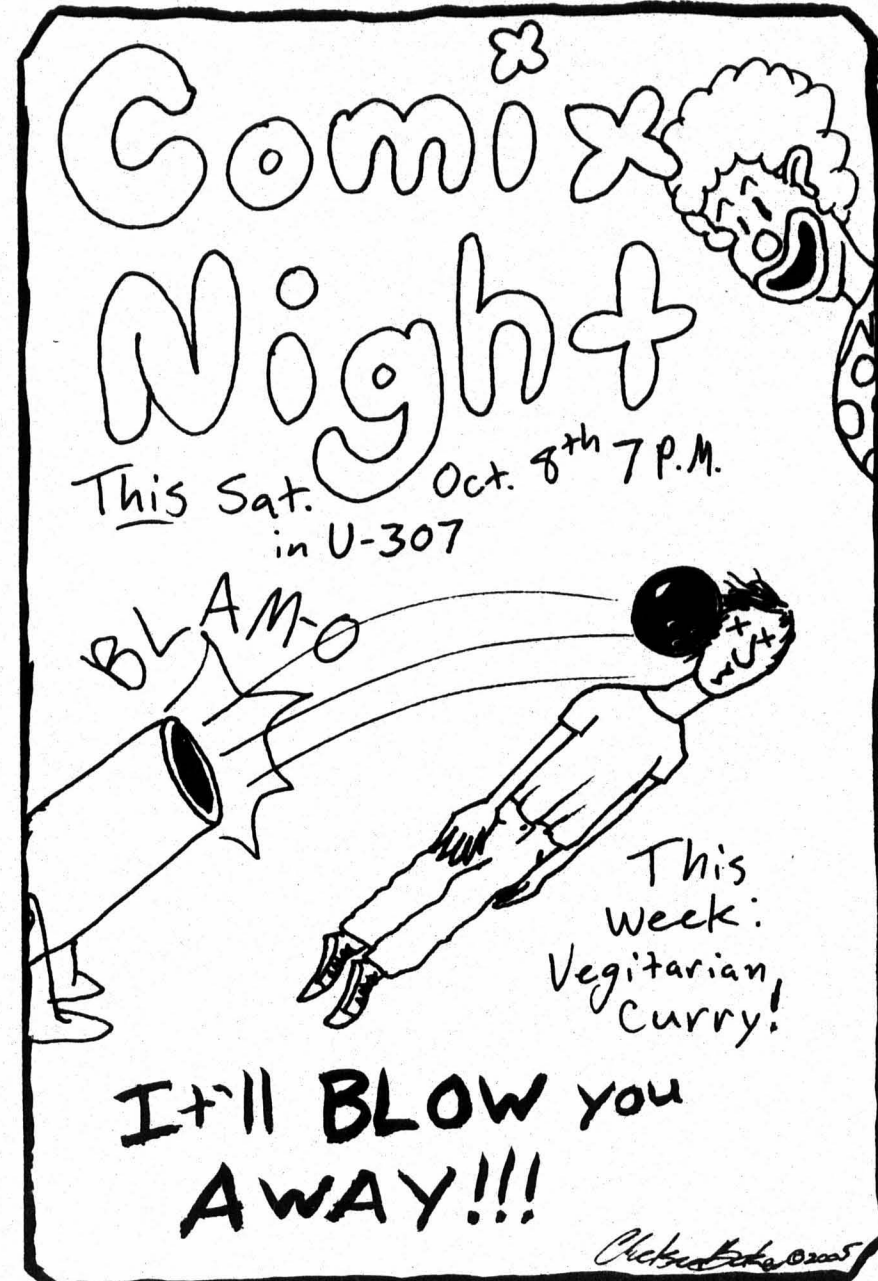 Comix
Night
This Sat. Oct. 8th 7 P.M.
in U-307
BLAM-O
This
Week:
Vegitarian
Curry!
It'll BLOW you
AWAY!!!
©2005